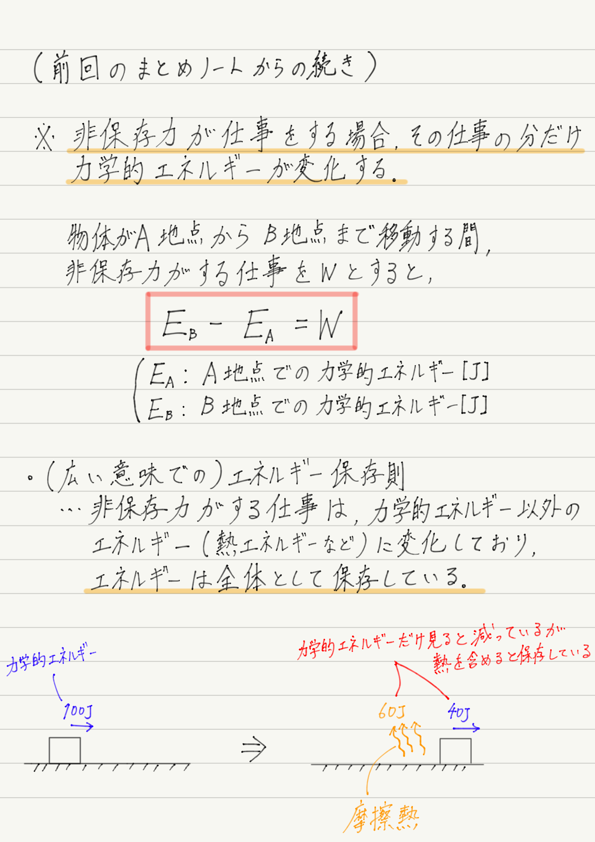 (前回のまとめノートからの続き)
※ 非保存力が仕事をする場合,その仕事の分だけ
力学的エネルギーが変化する.
物体がA地点からB地点まで移動する間,
非保存力がする仕事をWとすると,
E_B - E_A = W
E_A : A地点での力学的エネルギー[J]
E_B : B地点での力学的エネルギー[J]
・(広い意味での)エネルギー保存則
… 非保存力がする仕事は,力学的エネルギー以外の
エネルギー(熱エネルギーなど)に変化しており,
エネルギーは全体として保存している.
力学的エネルギー
100J
⇒
力学的エネルギーだけ見ると減っているが
熱を含めると保存している
60J
40J
摩擦熱